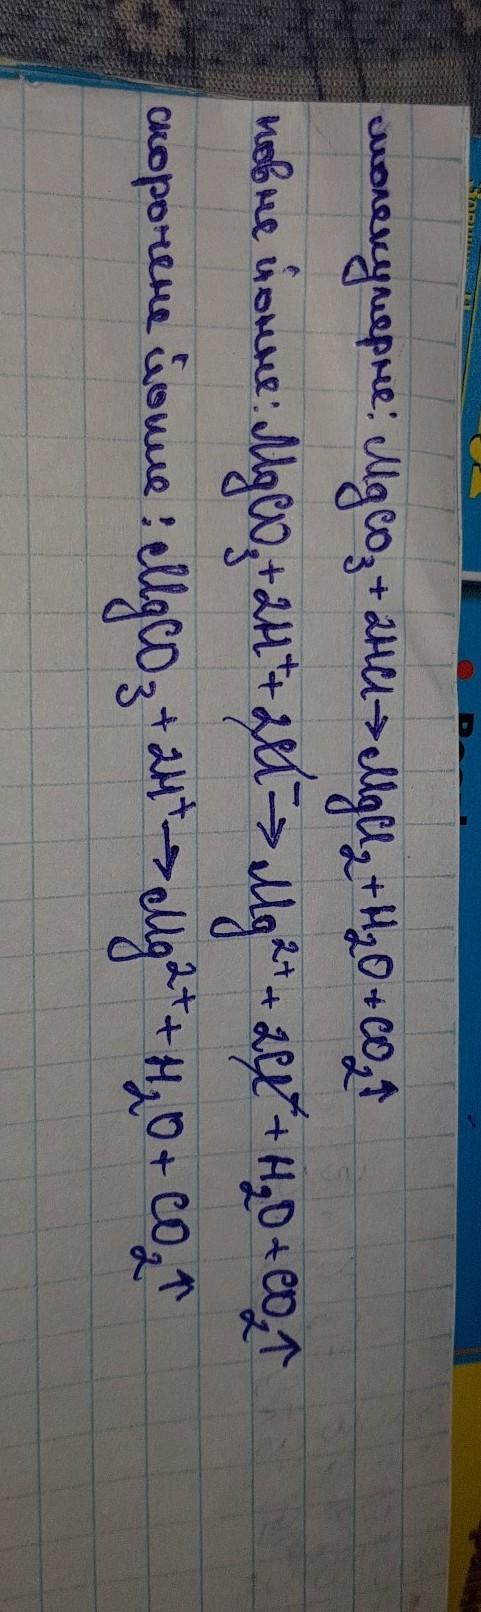 молекулярне: MgCO₃ + 2HCl → MgCl₂ + H₂O + CO₂↑
повне йонне: MgCO₃ + 2H⁺ + 2Cl⁻ → Mg²⁺ + 2Cl⁻ + H₂O + CO₂↑
скорочене йонне: MgCO₃ + 2H⁺ → Mg²⁺ + H₂O + CO₂↑